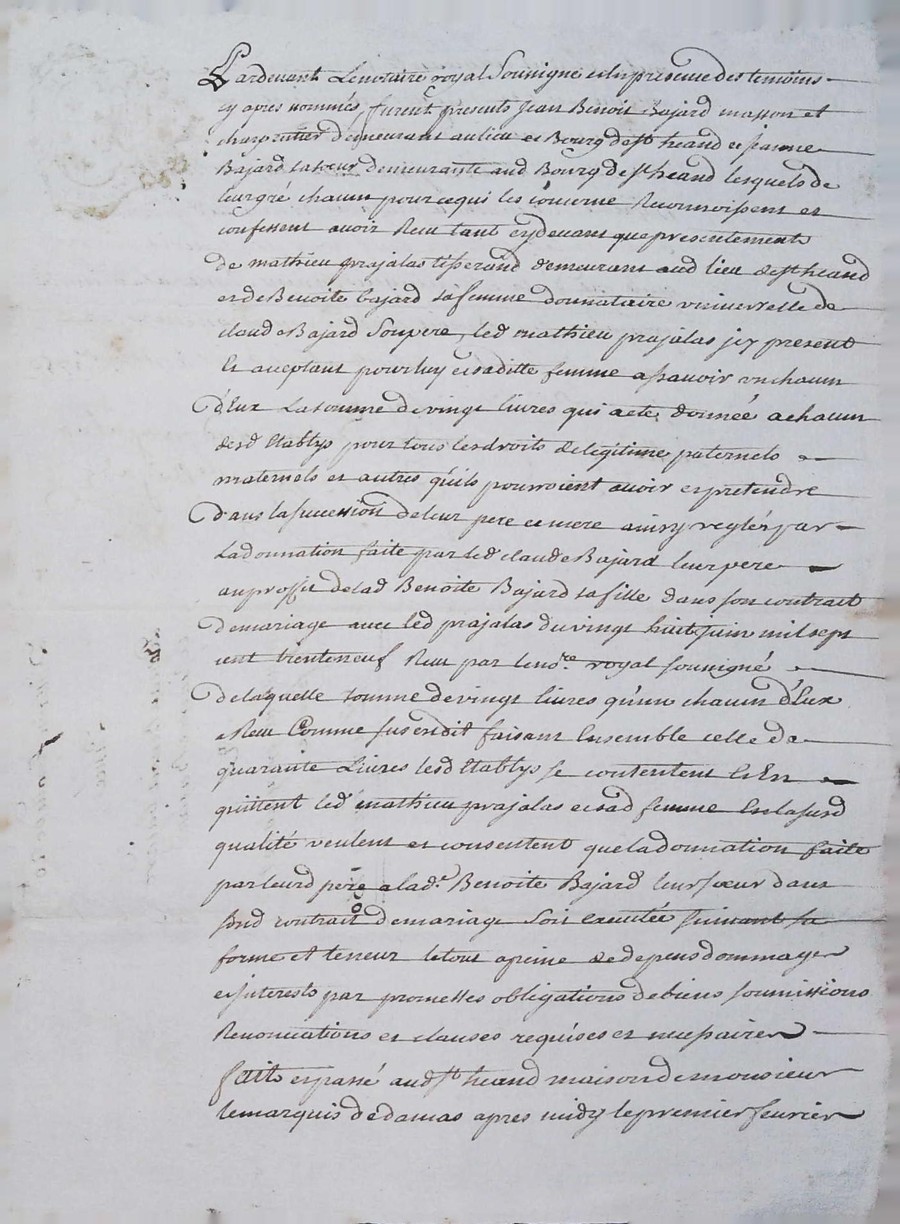 Pardevant Lenotaire royal Sousigné et en presence des temoins
cy apres nommés, furent presents Jean Benoit Bajard masson et
charpentier demeurant au lieu et Bourg de st heand et Jeanne
Bajard sa soeur demeurante aud Bourg de st heand lesquels de
leur gré chacun pour ce qui les concerne Reconnoissent et
confessent avoir Reçu tant cy devant que presentements
de mathieu prajalas tisserand demeurant aud lieu de st heand
et de Benoite bajard sa femme donnataire universelle de
claude Bajard Son pere, led mathieu prajalas icy present
Et acceptant pour luy et saditte femme a sçavoir un chacun
d'Eux La somme de vingt livres qui a eté donnée a chacun
desd Etablys pour tous les droits de legitime paternels
maternels et autres qu'ils pourroient avoir et pretendre
dans la succession de leur pere et mere ainsy reglés par
La donnation faite par led claude Bajard leur pere
au proffit de lad Benoite Bajard sa fille dans son contrait
de mariage avec led prajalas du vingt huit juin mil sept
cent trente neuf Reçu par le no.re royal sousigné
de laquelle somme de vingt livres qu'un chacun d'Eux
a Reçu Comme susendit faisant Ensemble celle de
quarante Livres lesd Etablys se contentent Et En
quittent led mathieu prajalas et sad femme En la susd
qualité veulent et consentent que la donnation faite
par leurd père a lad.e Benoite Bajard leur soeur dans
sond contrait de mariage Soit executée suivant sa
forme et teneur le tout a peine de depens dommages
et interests par promesses obligations de biens soumissions
Renonciations et clauses requises et necessaires
fait et passé aud st heand maison de monsieur
le marquis de damas apres midy le premier fevrier